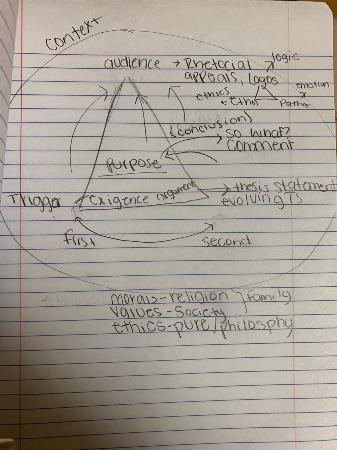 context
audience → Rhetocial → logic
appeals, Logos
emotion
ethics ← Ethos Pathos
(conclusion)
so what?
comment
purpose
Trigger Exigence argument → thesis statement
evolving TS
first second
morals-religion } family
values-society
ethics-pure/philosphy